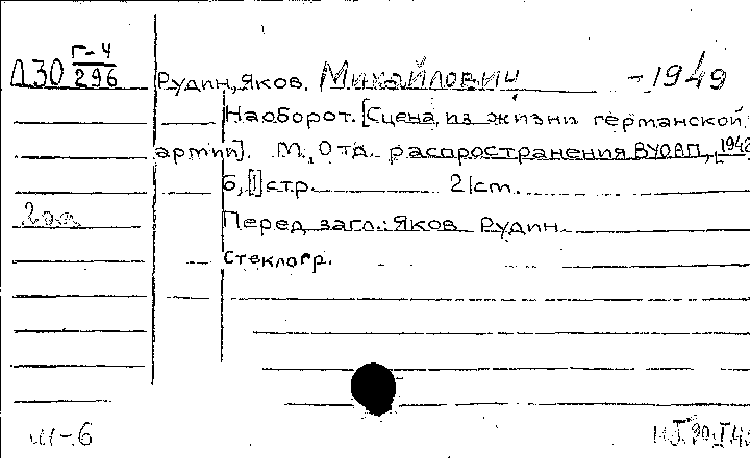 Д30 Г-4/296 Рудин, Яков. Михайлович -1949
Наоборот. [Сцена из жизни германской
армии]. М., Отд. распространения ВУОАП,
6, [1] стр. 21 cm.
2 экз.
Перед загл.: Яков Рудин.
Стеклогр.
Ш-6